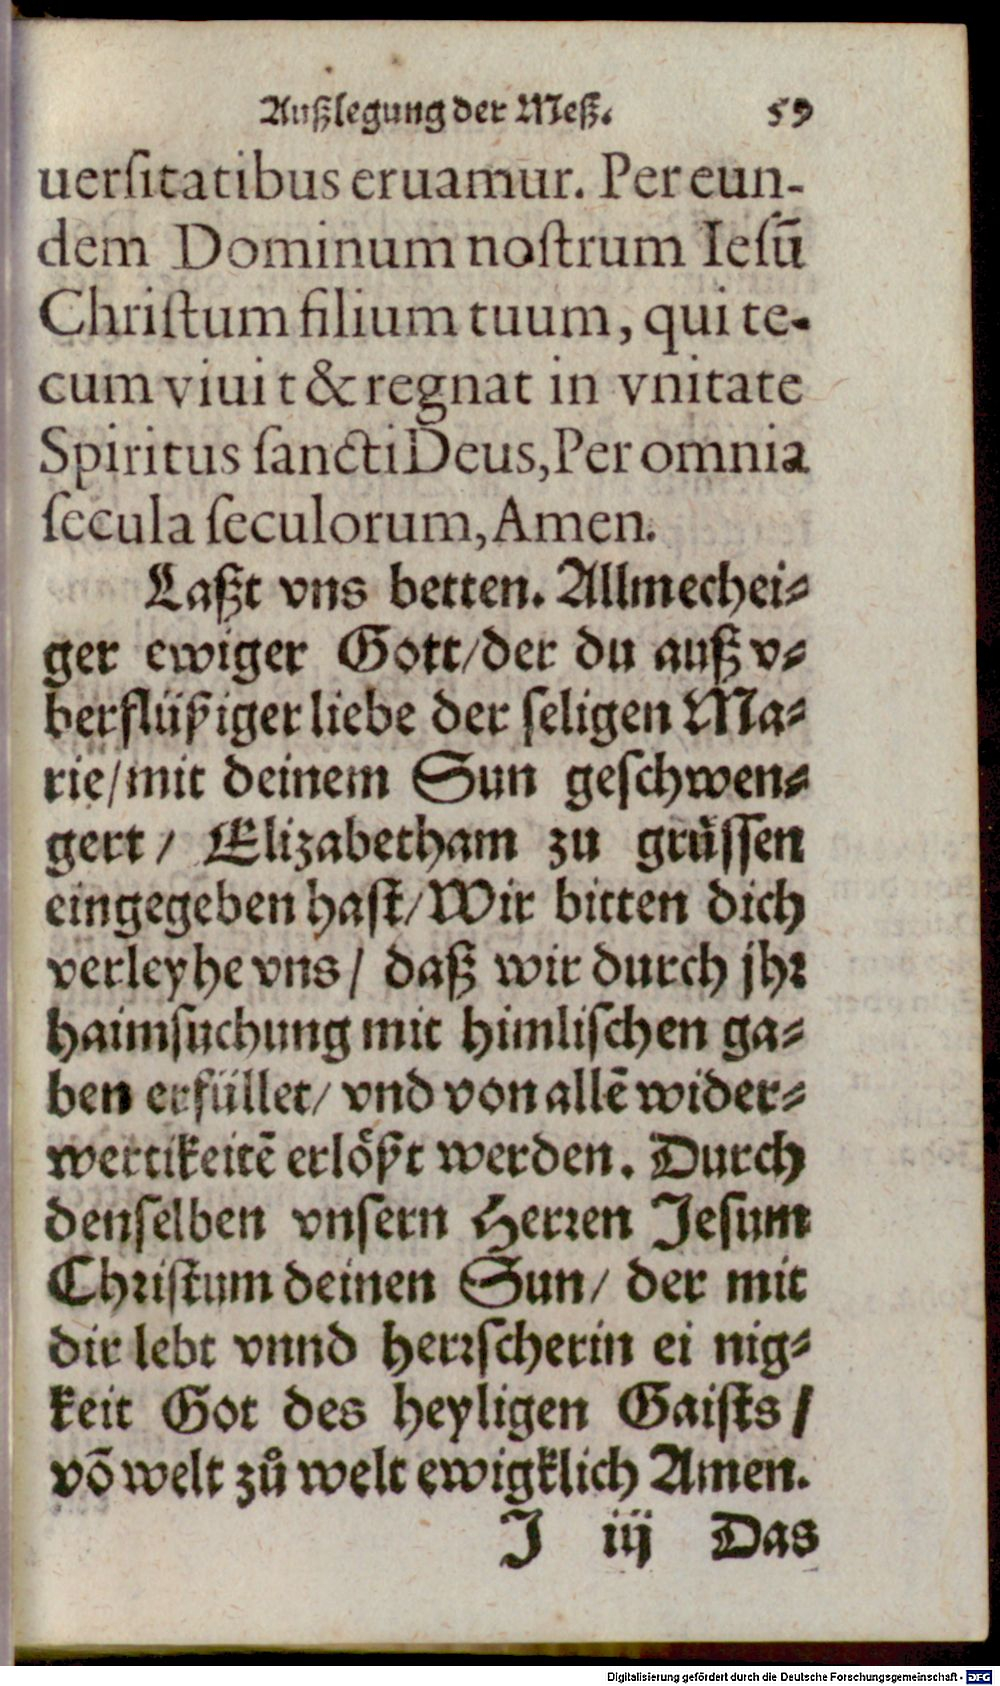 Außlegung der Meß. 59
uersitatibus eruamur. Per eun-
dem Dominum nostrum Iesū
Christum filium tuum, qui te-
cum viuit & regnat in vnitate
Spiritus sancti Deus, Per omnia
secula seculorum, Amen.
Laßt vns betten. Allmechei-
ger ewiger Gott/ der du auß v-
berflüßiger liebe der seligen Ma-
rie/ mit deinem Sun geschwen-
gert/ Elizabetham zu grüssen
eingegeben hast/ Wir bitten dich
verleyhe vns/ daß wir durch jhr
haimsuchung mit himlischen ga-
ben erfüllet/ vnd von allē wider-
wertikeitē erlößt werden. Durch
denselben vnsern Herren Jesum
Christum deinen Sun/ der mit
dir lebt vnnd herrscherin ei nig-
keit Got des heyligen Gaists/
vō welt zů welt ewigklich Amen.
J iij Das
Digitalisierung gefördert durch die Deutsche Forschungsgemeinschaft - DFG